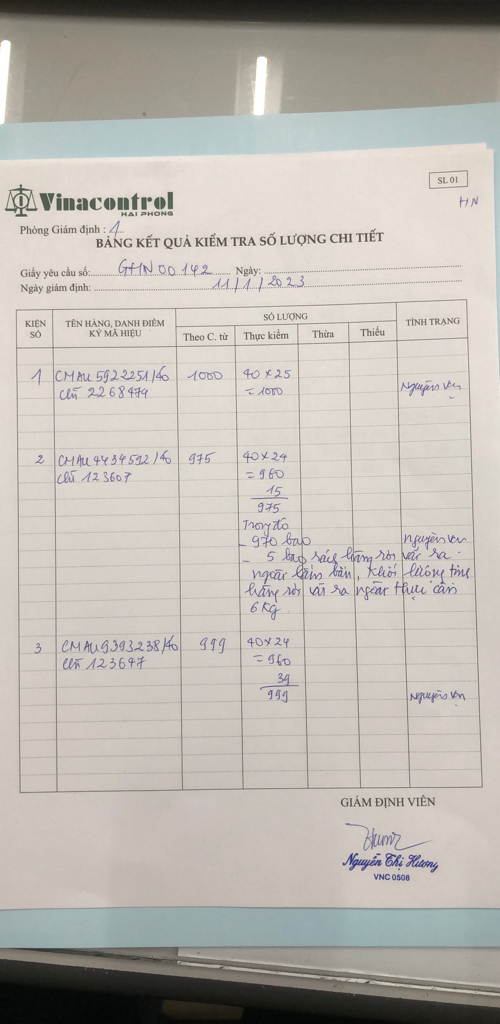 SL 01
HN
Vinacontrol
HAI PHONG
Phòng Giám định : 1
BẢNG KẾT QUẢ KIỂM TRA SỐ LƯỢNG CHI TIẾT
Giấy yêu cầu số: GHN 00142 Ngày:
Ngày giám định: 11/1/2023
KIỆN SỐ
TÊN HÀNG, DANH ĐIỂM KỸ MÃ HIỆU
SỐ LƯỢNG
TÌNH TRẠNG
Theo C. từ
Thực kiểm
Thừa
Thiếu
1 CMAU 5922251/40 1000 40 x 25
chì 2268479 = 1000 Nguyên vẹn
2 CMAU 4434592/40 975 40 x 24
chì 123607 = 960
15
975
Trong đó
- 970 bao Nguyên vẹn
- 5 bao rách hàng rơi vãi ra
ngoài bẩn, khối lượng
hàng rơi vãi ra ngoài thực cân
6 Kg
3 CMAU 9393238/40 999 40 x 24
chì 123647 = 960
39
999 Nguyên vẹn
GIÁM ĐỊNH VIÊN
Nguyễn Thị Hương
VNC 0508